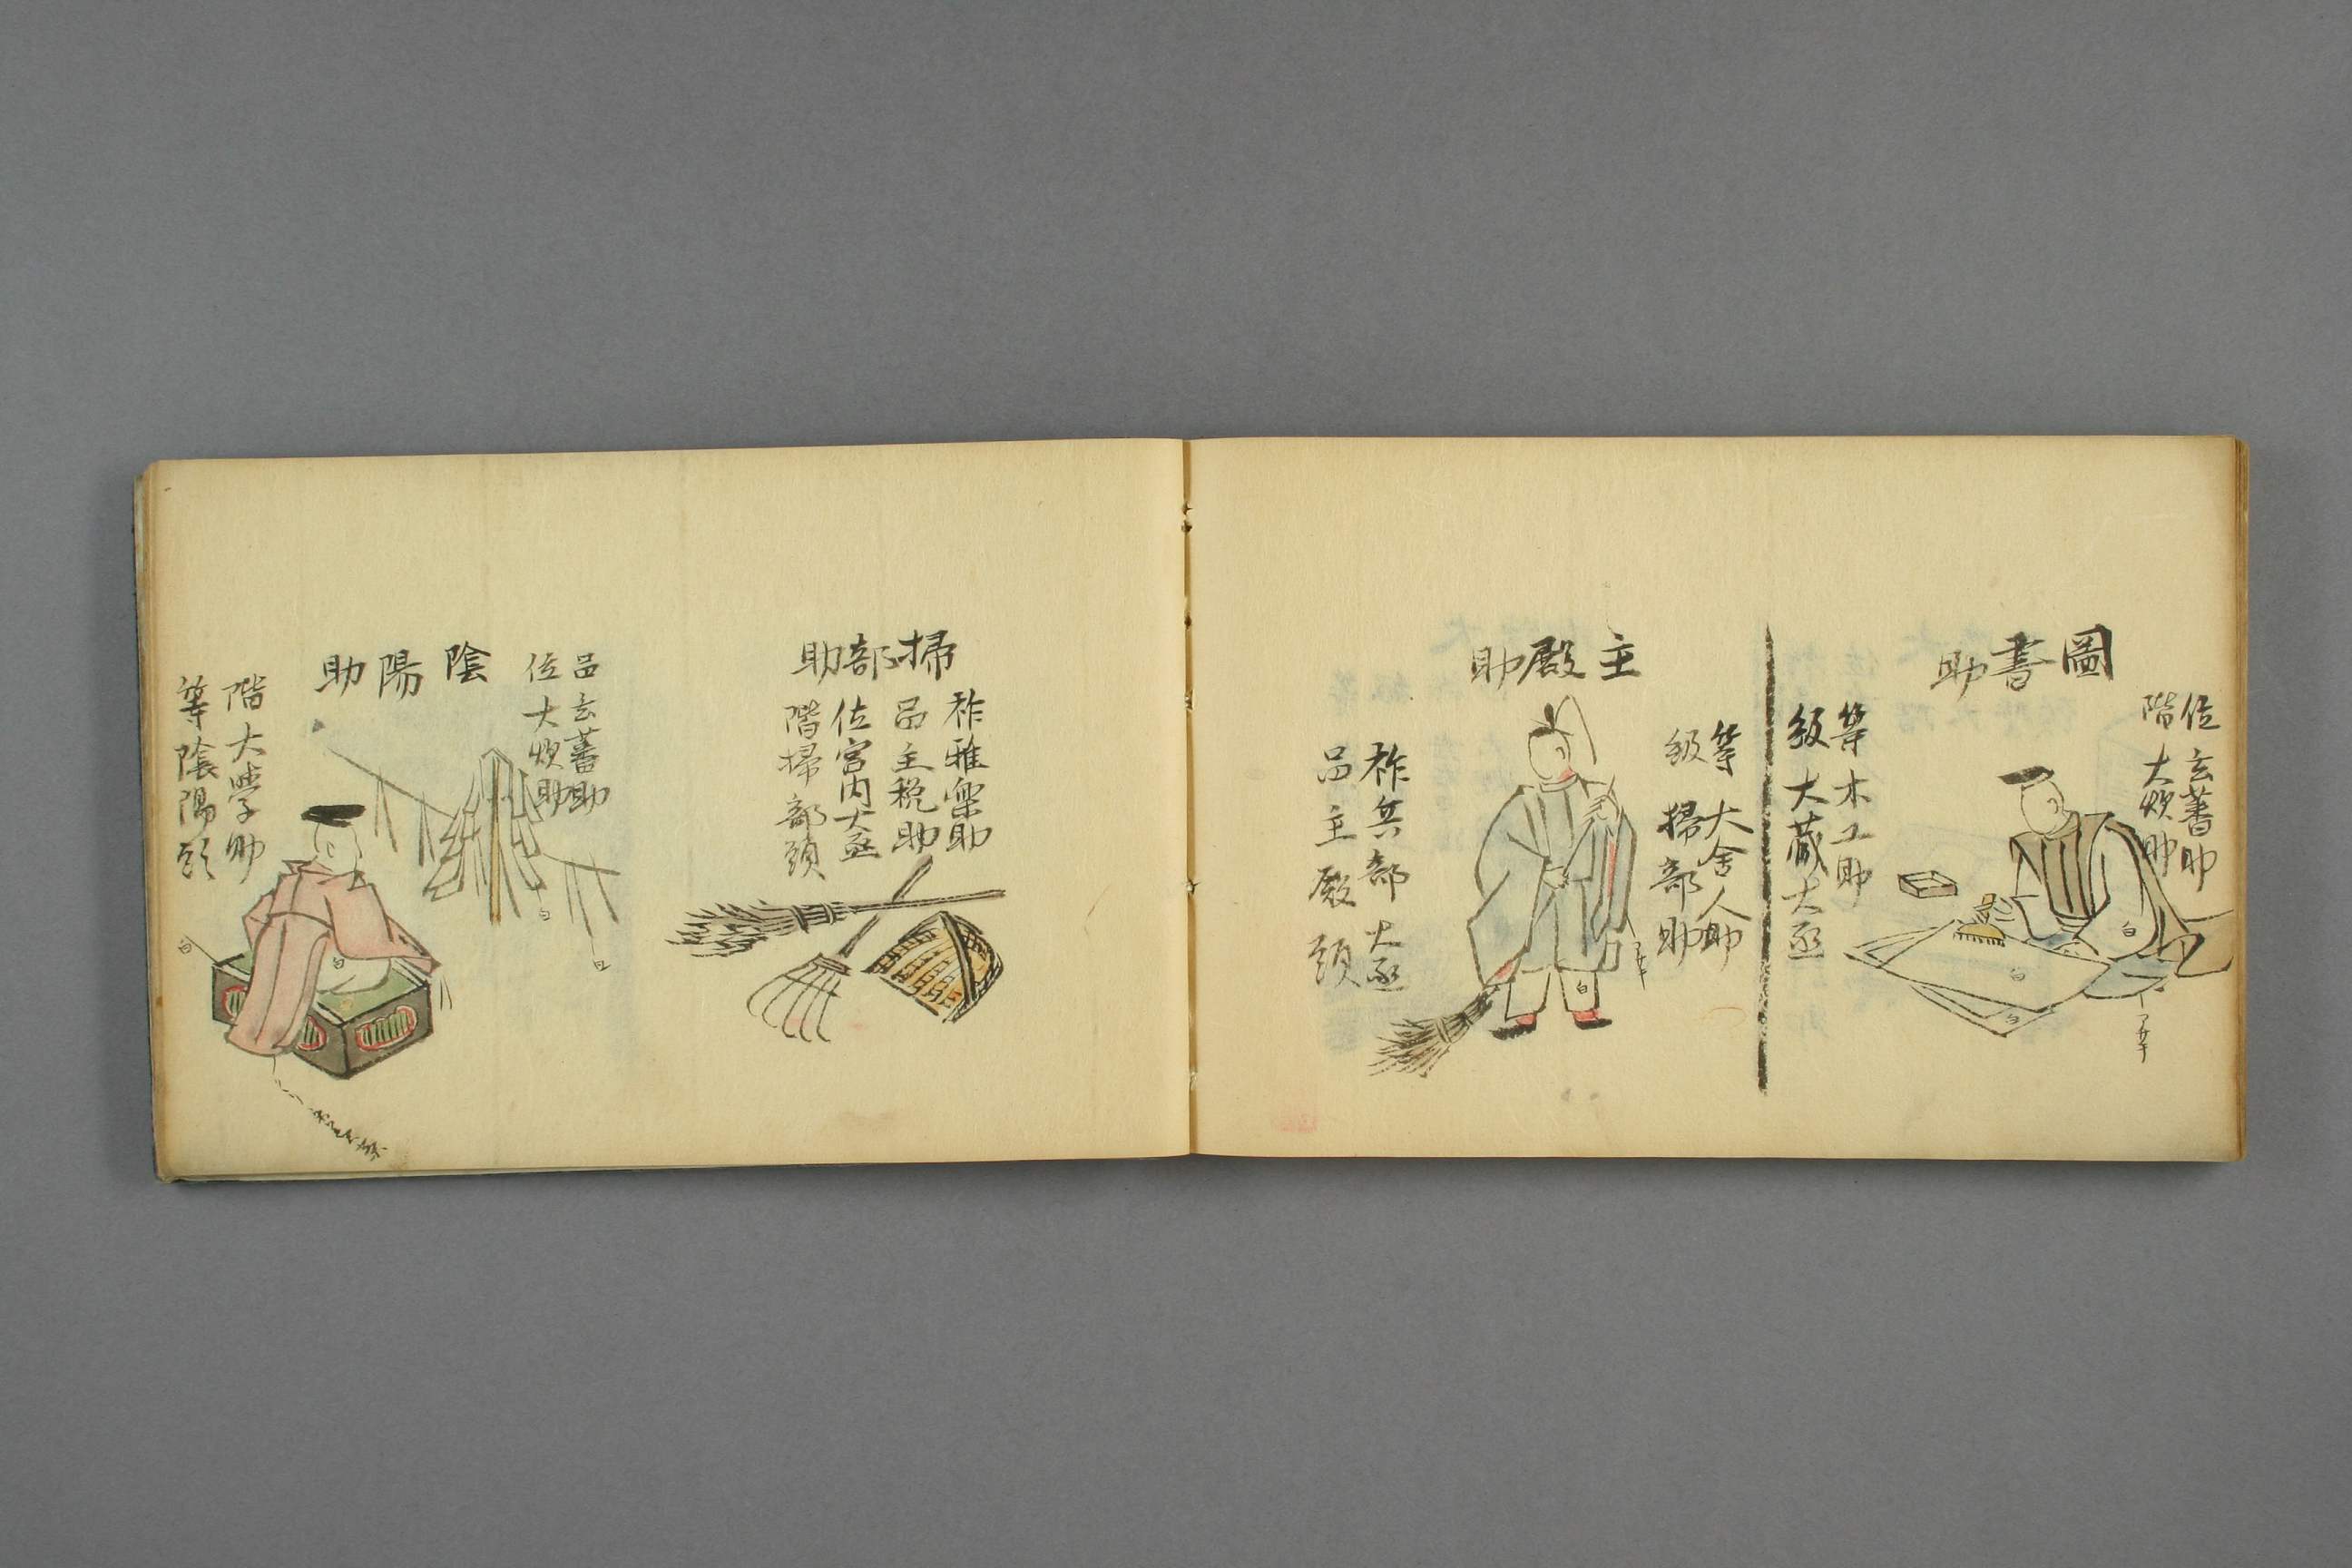 圖書助
位 玄蕃助
階 大炊助
等 木工助
級 大蔵大丞
主殿助
等 大舎人助
級 掃部助
祚 兵部大丞
品 主殿頭
掃部助
祚 雅楽助
品 主税助
位 宮内大丞
階 掃部頭
陰陽助
品 玄蕃助
位 大炊助
階 大学助
等 陰陽頭
白
白
白
白
白
白
白